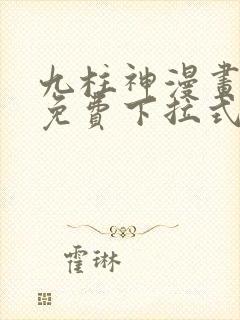 九柱神漫畫
免費下拉式
霍琳